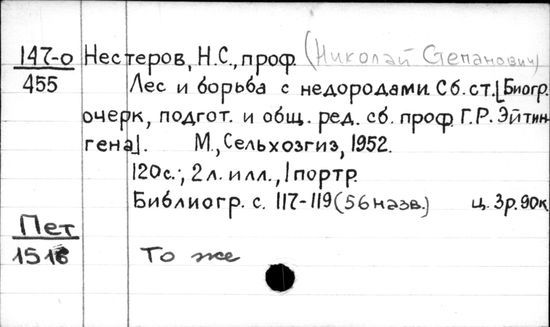 147-о Нестеров, Н.С., проф. (Николай Степанович)
455 Лес и борьба с недородами. Сб. ст. [Биогр.
очерк, подгот. и общ. ред. сб. проф. Г.Р. Эйтин-
гена].  М., Сельхозгиз, 1952.
120с.; 2л. илл., 1 портр.
Библиогр. с. 117-119 (56 назв.)  ц. 3р. 90к
Пет
То же